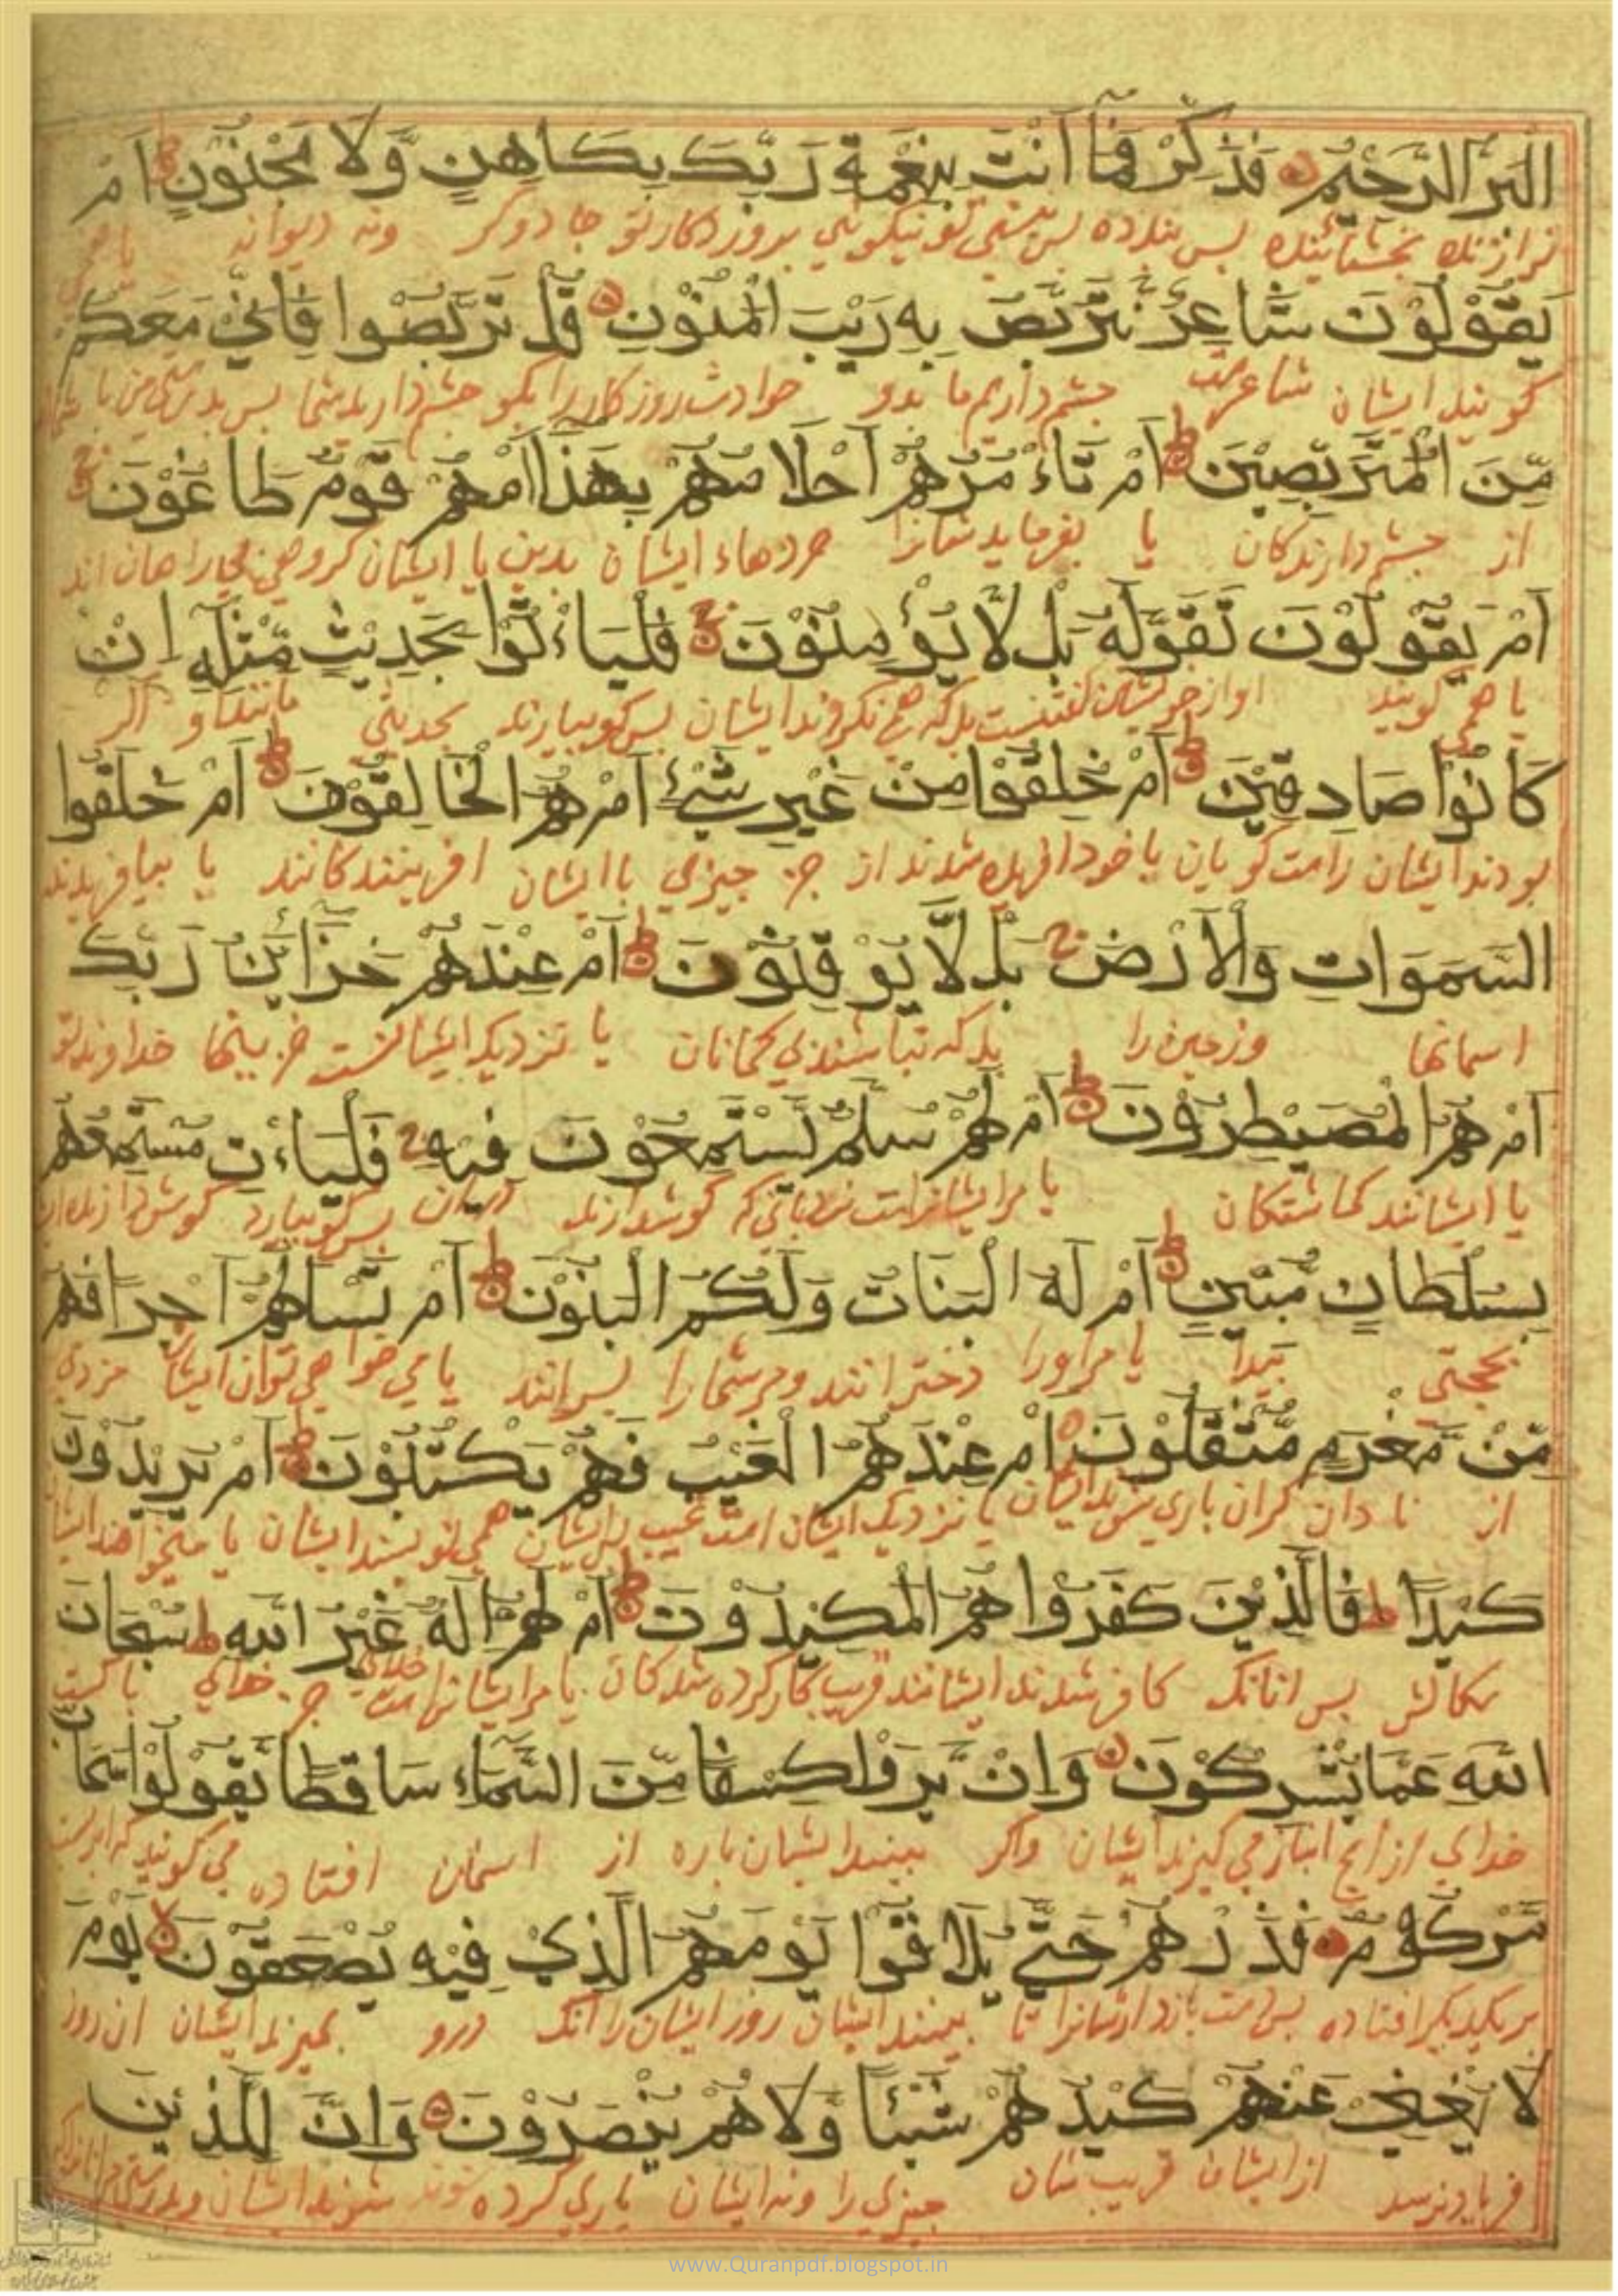 الْبَرُّ الرَّحِيْمُ فَذَكِّرْ فَمَا أَنْتَ بِنِعْمَةِ رَبِّكَ بِكَاهِنٍ وَّلَا مَجْنُوْنٍ اَمْ
بخشاینده پس پند ده پس نیستی تو بنیکویی پروردکار تو جادوکر ونه دیوانه یا
يَقُوْلُوْنَ شَاعِرٌ نَّتَرَبَّصُ بِهِ رَيْبَ الْمَنُوْنِ قُلْ تَرَبَّصُوا فَاِنِّيْ مَعَكُمْ
کویند ایشان شاعرست چشم داریم ما بدو حوادث روزکار را بکو چشم دارید شما پس بدرستی من با شما
مِّنَ الْمُتَرَبِّصِيْنَ اَمْ تَاءْمُرُهُمْ اَحْلَامُهُمْ بِهَذَا اَمْ هُمْ قَوْمٌ طَاغُوْنَ
از چشم دارندکان یا بفرماید شانرا خردهاء ایشان بدین یا ایشان کروهی
اَمْ يَقُوْلُوْنَ تَقَوَّلَهُ بَلْ لَّا يُؤْمِنُوْنَ فَلْيَاءْتُوْا بِحَدِيْثٍ مِّثْلِهِ اِنْ
یا می کویند او از خویشتن بلکه نکروند ایشان پس کو بیارند بحدیثی مانند او اکر
كَانُوْا صَادِقِيْنَ اَمْ خُلِقُوْا مِنْ غَيْرِ شَيْءٍ اَمْ هُمُ الْخَالِقُوْنَ اَمْ خَلَقُوا
بودند ایشان راست کویان یا خود افریده شدند از جز چیزی یا ایشان افرینندکانند یا بیافریدند
السَّمَوَاتِ وَالْاَرْضَ بَلْ لَّا يُوْقِنُوْنَ اَمْ عِنْدَهُمْ خَزَائِنُ رَبِّكَ
اسمانها وزمین را بلکه نباشند بی کمانان یا نزدیک ایشانست خزینها خداوند تو
اَمْ هُمُ الْمُصَيْطِرُوْنَ اَمْ لَهُمْ سُلَّمٌ يَّسْتَمِعُوْنَ فِيْهِ فَلْيَاءْتِ مُسْتَمِعُهُمْ
یا ایشانند کماشتکان یا مر ایشانراست نردبانی که کوش دارند دران پس کو بیارد
بِسُلْطَانٍ مُّبِيْنٍ اَمْ لَهُ الْبَنَاتُ وَلَكُمُ الْبَنُوْنَ اَمْ تَسْاَلُهُمْ اَجْرًا فَهُمْ
بحجتی پیدا یا مر اورا دخترانند ومر شما را پسرانند یا می خواهی توان ایشان مزدی
مِّنْ مَّغْرَمٍ مُّثْقَلُوْنَ اَمْ عِنْدَهُمُ الْغَيْبُ فَهُمْ يَكْتُبُوْنَ اَمْ يُرِيْدُوْنَ
از تاوان کران باری یا نزدیک ایشان است غیب پس ایشان همی نویسند ایشان یا میخواهند ایشان
كَيْدًا فَالَّذِيْنَ كَفَرُوا هُمُ الْمَكِيْدُوْنَ اَمْ لَهُمْ اِلَهٌ غَيْرُ اللهِ سُبْحَانَ
سکالش پس انانک کافر شدند ایشانند فریب بکار کرده شدکان یا مر ایشانراست خدای جز خدای پاکست
اللهِ عَمَّا يُشْرِكُوْنَ وَاِنْ يَّرَوْا كِسْفًا مِّنَ السَّمَاءِ سَاقِطًا يَّقُوْلُوْا سَحَابٌ
خدای از انچ انباز می کیرند ایشان واکر ببینند ایشان پاره از اسمان افتاده می کویند که ابریست
مَّرْكُوْمٌ فَذَرْهُمْ حَتَّى يُلَاقُوْا يَوْمَهُمُ الَّذِيْ فِيْهِ يُصْعَقُوْنَ يَوْمَ
بر یکدیکر افتاده پس دست بازدار شانرا تا ببینند ایشان روز ایشان را انک درو بمیرند ایشان ان روز
لَا يُغْنِيْ عَنْهُمْ كَيْدُهُمْ شَيْئًا وَّلَا هُمْ يُنْصَرُوْنَ وَاِنَّ لِلَّذِيْنَ
فریاد نرسد از ایشان فریب شان چیزی را ونه ایشان یاری کرده شوند ایشان وبدرستی
www.Quranpdf.blogspot.in